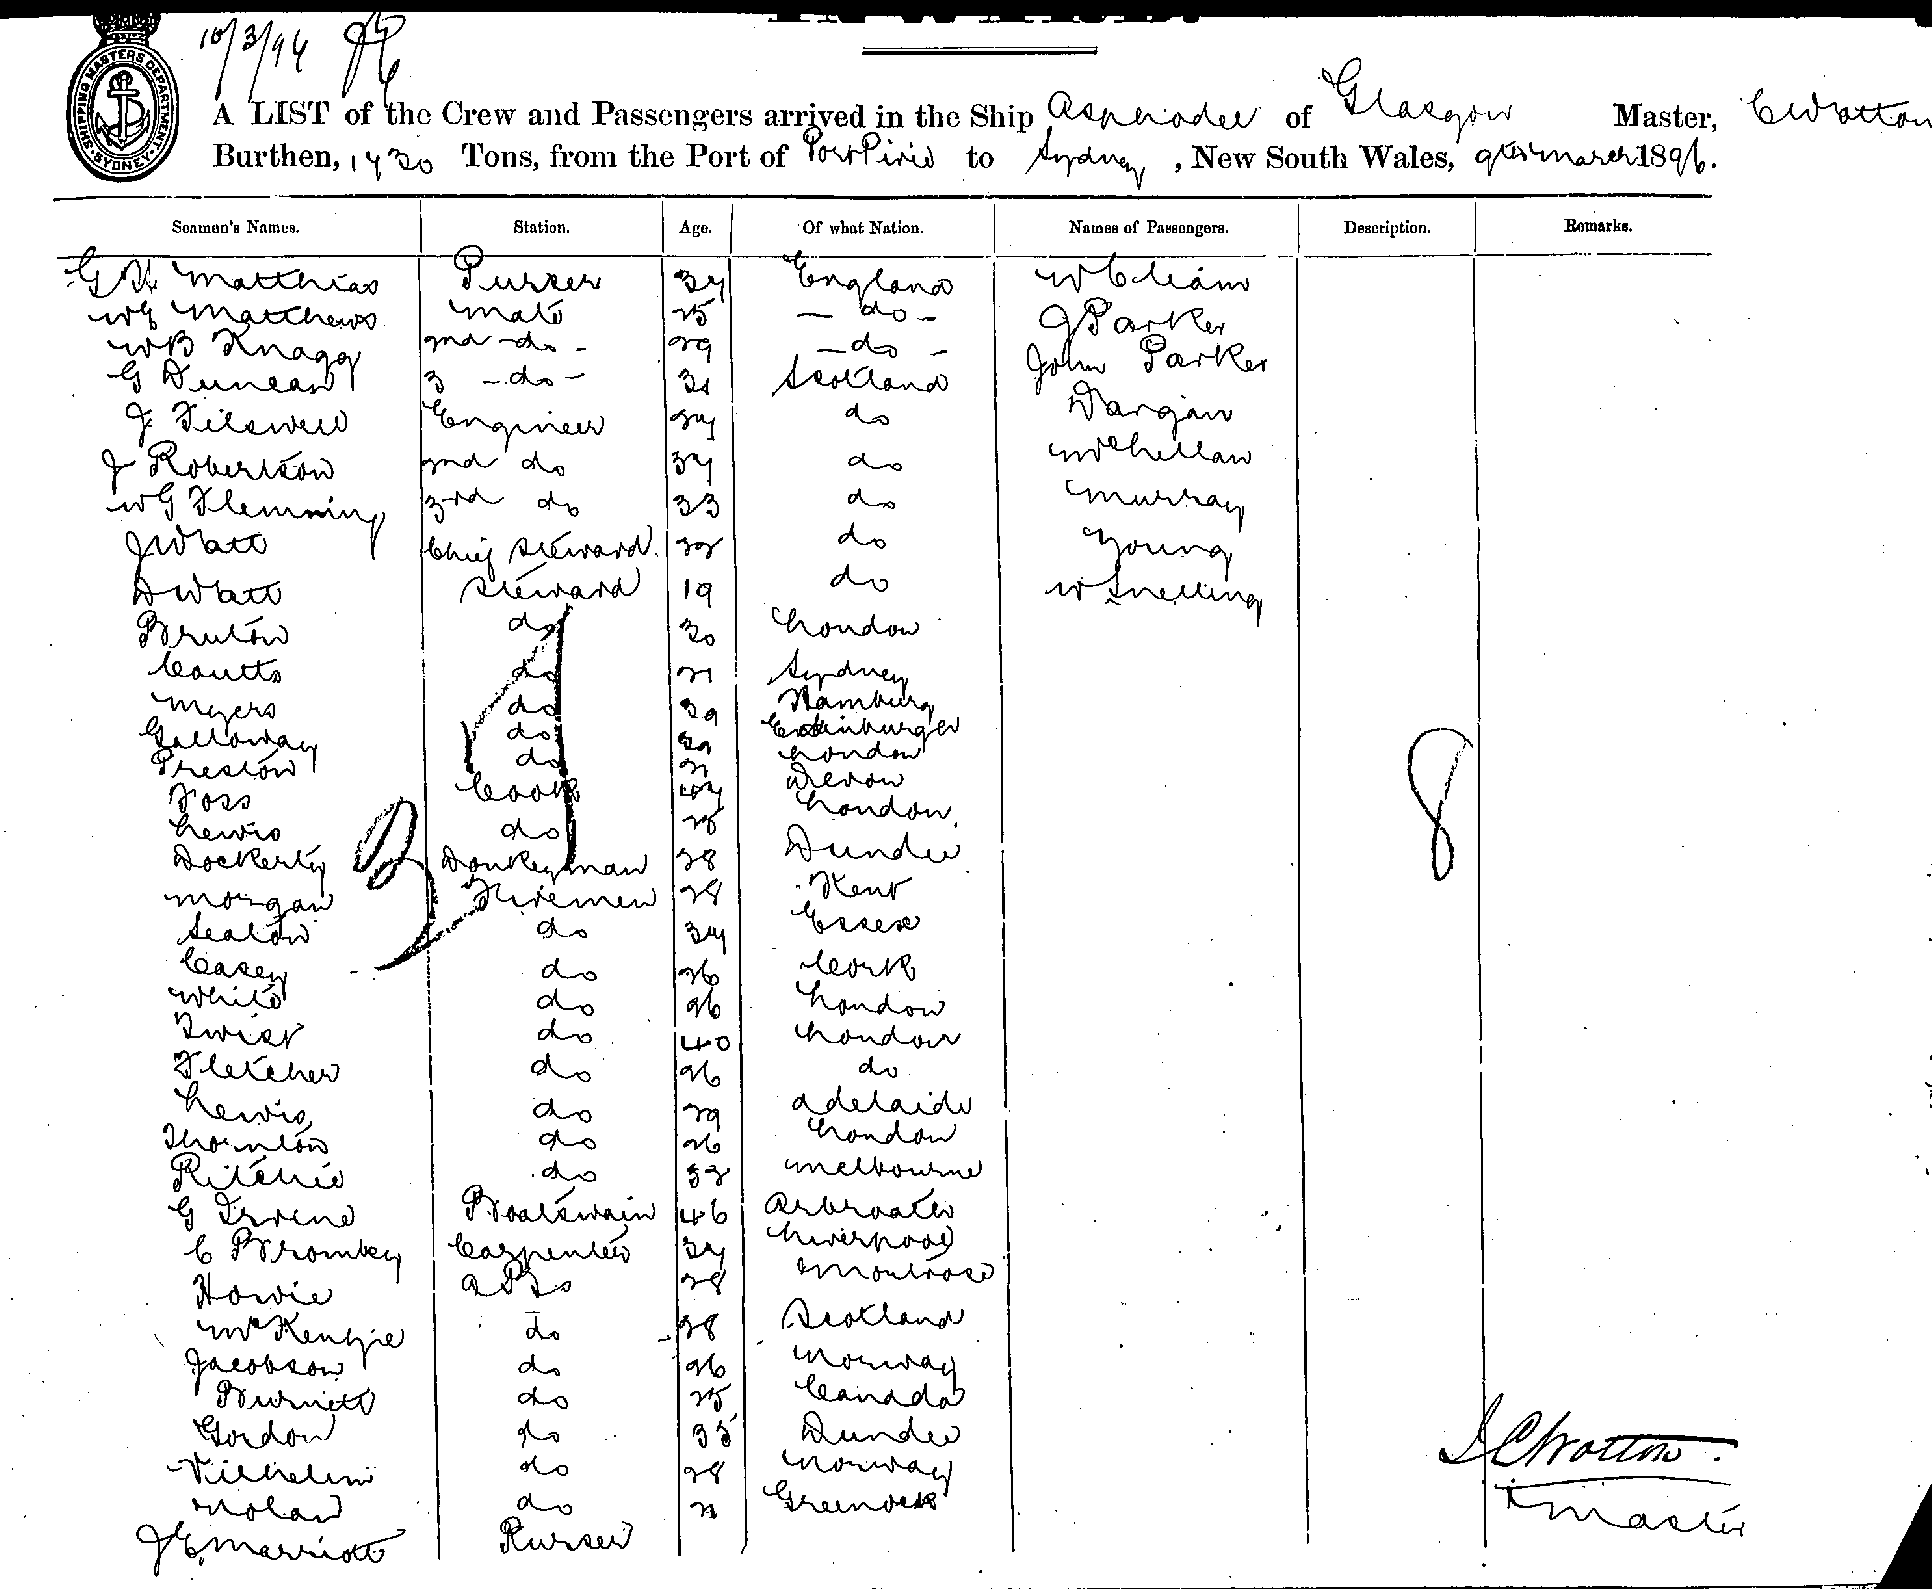 10/3/96
SHIPPING MASTERS DEPARTMENT
SYDNEY
A LIST of the Crew and Passengers arrived in the Ship Asphodel of Glasgow Master, C Wotton
Burthen, 1930 Tons, from the Port of Port Pirie to Sydney, New South Wales, 9th march 1896.
Seamen's Names. Station. Age. Of what Nation. Names of Passengers. Description. Remarks.
G H Matthias Purser 34 England
WG Matthews mate 25 - do - J Parker
WB Knagg 2nd - do - 29 - do - John Parker
G Duncan 3 - do - Scotland Dargan
J Tilswell Engineer 24 do McLellan
J Robertson 2nd do 34 do Murray
WG Flemming 3rd do 33 do Young
J Watt Chief Steward. 22 do W Snelling
D Watt Steward 19 do
Bruton do 30 London
Coutts do 21 Sydney
Myers do 39 Hamburg
Galloway do Edinburgh
Preston do 21 London
Foss Cook Devon
Lewis do 25 London.
Dockerty Donkeyman 28 Dundee
Morgan Firemen 28 Kent
Seaton do 34 Essex
Casey do 26 Cork
White do 26 London
Twist do 40 London
Fletcher do 26 do
Lewis do 29 Adelaide
Thornton do 26 London
Ritchie do 32 Melbourne
G Irvine Boatswain 46 Arbroath
C Bromley Carpenter 34 Liverpool
Howie ABs 28 Montrose
McKenzie do 28 Scotland
Jacobson do 26 Norway
Burnett do 25 Canada
Gordon do 35 Dundee
Vilhelm do 28 Norway
Nolan do 21 Greenock
J E Marriott Purser
31
8
C Wotton.
Master